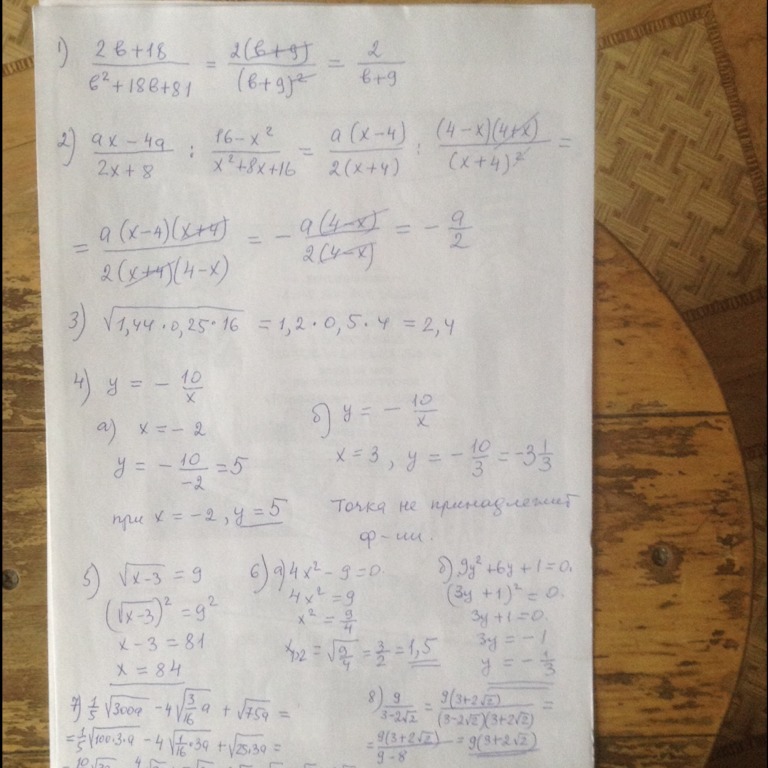 1) (2в+18)/(в²+18в+81) = 2(в+9)/(в+9)² = 2/(в+9)
2) (ax-4a)/(2x+8) : (16-x²)/(x²+8x+16) = a(x-4)/2(x+4) : (4-x)(4+x)/(x+4)² =
= a(x-4)(x+4)/2(x+4)(4-x) = - a(4-x)/2(4-x) = - a/2
3) √(1,44·0,25·16) = 1,2·0,5·4 = 2,4
4) y = - 10/x
а) x = - 2
y = - 10/-2 = 5
при x = -2, y = 5
б) y = - 10/x
x = 3, y = - 10/3 = -3 1/3
Точка не принадлежит
ф-ии.
5) √(x-3) = 9
(√(x-3))² = 9²
x-3 = 81
x = 84
6) а) 4x² - 9 = 0.
4x² = 9
x² = 9/4
x₁,₂ = √(9/4) = 3/2 = 1,5
б) 9y² + 6y + 1 = 0.
(3y+1)² = 0.
3y+1 = 0.
3y = -1
y = - 1/3
7) 1/5 √(300a) - 4√(3/16 a) + √(75a) =
= 1/5 √(100·3·a) - 4√(1/16·3a) + √(25·3a) =
8) 9/(3-2√2) = 9(3+2√2)/(3-2√2)(3+2√2) =
= 9(3+2√2)/(9-8) = 9(3+2√2)